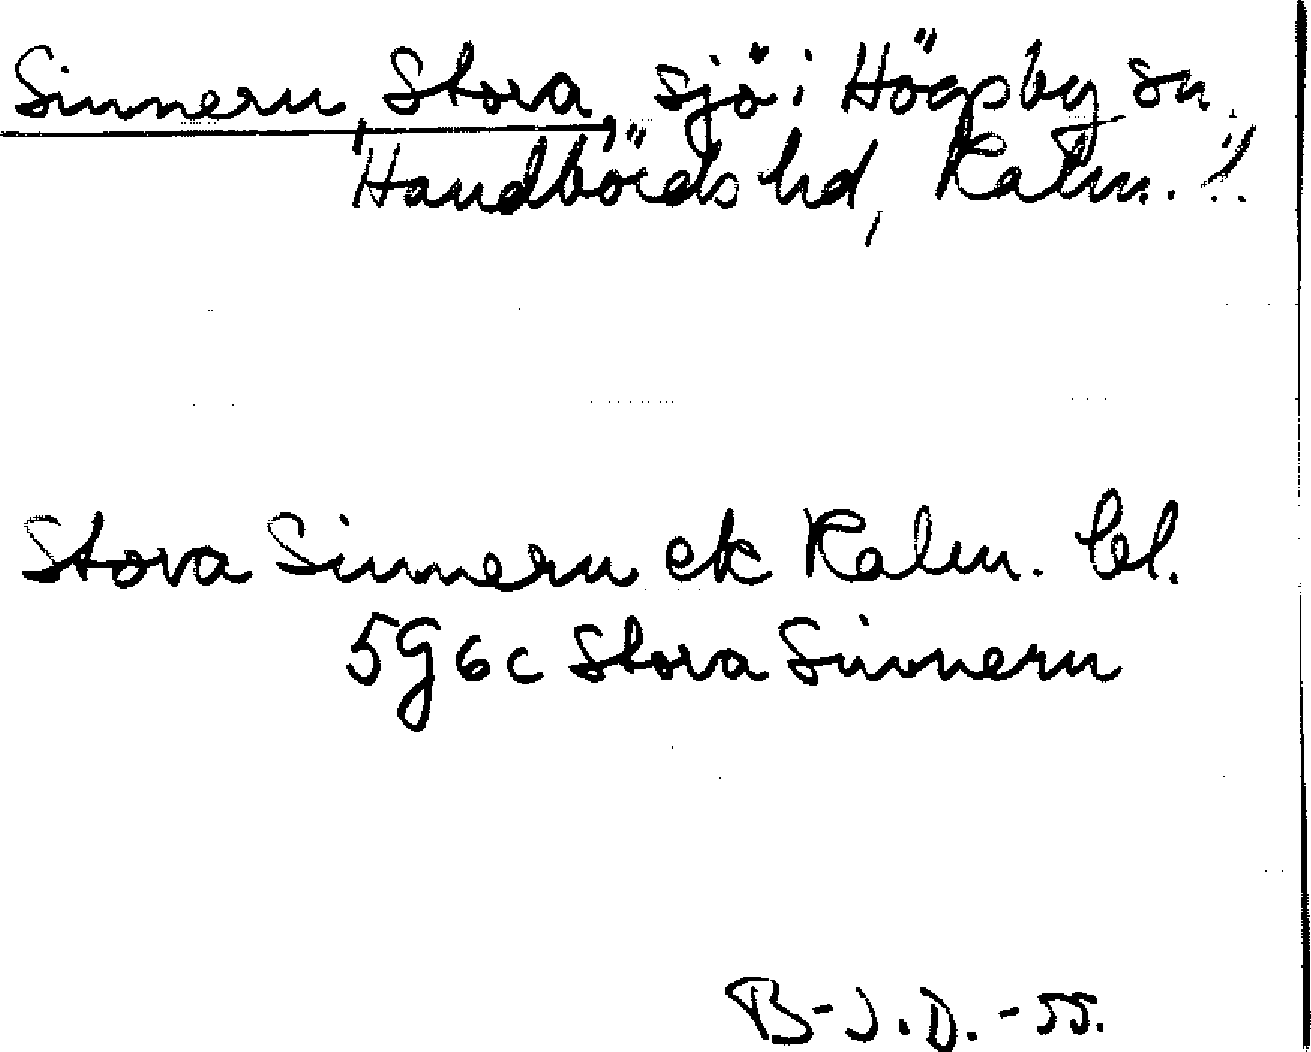 Sinnern, Stora, sjö i Högsby sn,
Handbörds hd, Kalm. l.
Stora Sinnern ek Kalm. bl.
5G6c Stora Sinnern
B-J.D.-55.